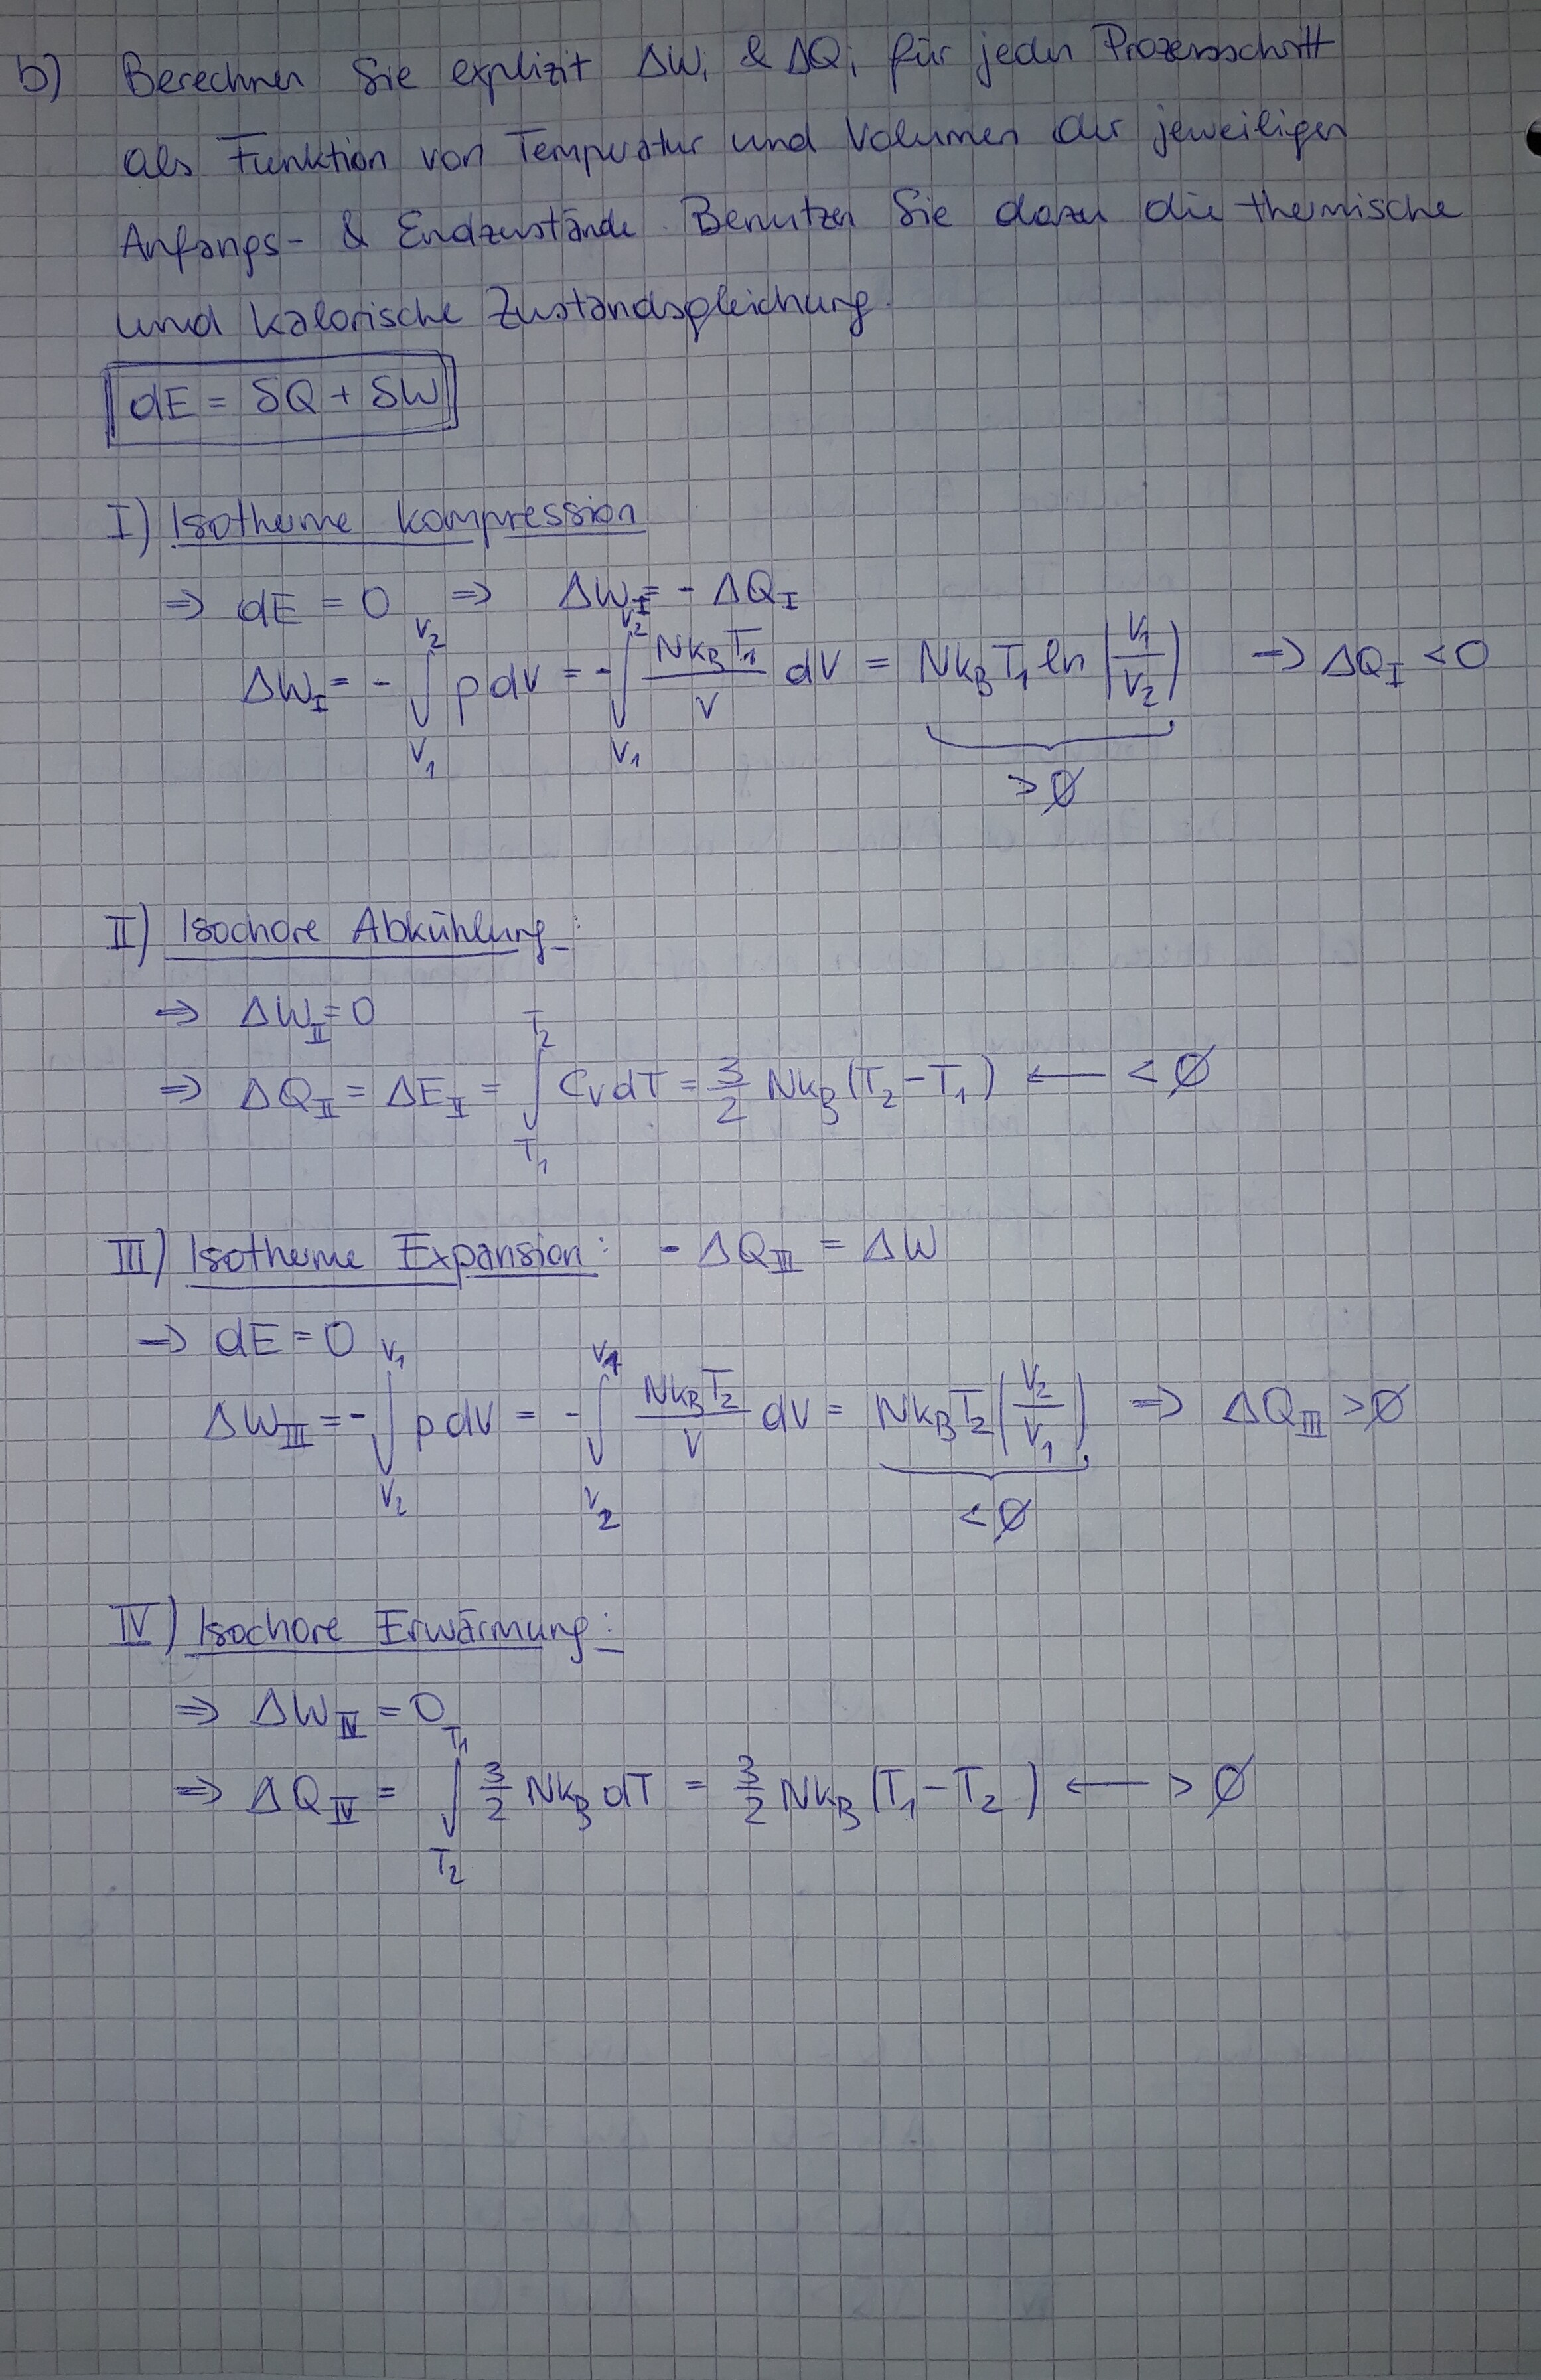 b) Berechnen Sie explizit ΔWᵢ & ΔQᵢ für jeden Prozessschritt
als Funktion von Temperatur und Volumen der jeweiligen
Anfangs- & Endzustände. Benutzen Sie dazu die thermische
und kalorische Zustandsgleichung.
dE = δQ + δW
I) Isotherme Kompression
⇒ dE = 0 ⇒ ΔW_I = - ΔQ_I
ΔW_I = - ∫_{V₁}^{V₂} p dV = - ∫_{V₁}^{V₂} \frac{Nk_B T₁}{V} dV = Nk_B T₁ ln(\frac{V₁}{V₂}) → ΔQ_I < 0
> 0
II) Isochore Abkühlung:
⇒ ΔW_II = 0
⇒ ΔQ_II = ΔE_II = ∫_{T₁}^{T₂} C_V dT = \frac{3}{2} Nk_B (T₂ - T₁) ← < 0
III) Isotherme Expansion: - ΔQ_III = ΔW
→ dE = 0
ΔW_III = - ∫_{V₂}^{V₁} p dV = - ∫_{V₂}^{V₁} \frac{Nk_B T₂}{V} dV = Nk_B T₂ (\frac{V₂}{V₁}) ⇒ ΔQ_III > 0
< 0
IV) Isochore Erwärmung:
⇒ ΔW_IV = 0
⇒ ΔQ_IV = ∫_{T₂}^{T₁} \frac{3}{2} Nk_B dT = \frac{3}{2} Nk_B (T₁ - T₂) ← > 0